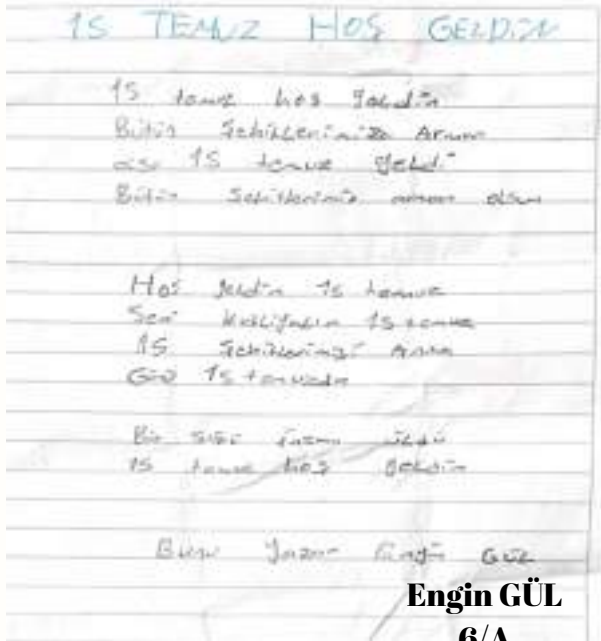 15 TEMUZ HOŞ GELDİN
15 temuz hoş geldin
Bütün Şehitlerimize
15 temuz geldi
Bütün Şehitlerimiz olsun
Hoş geldin 15 temuz
Seni 15 temuz
15 Şehitlerimizi Anma
15 temuzda
Bir sürü öldü
15 temuz hoş geldin
Bunu Yazan Engin GÜL
Engin GÜL
6/A